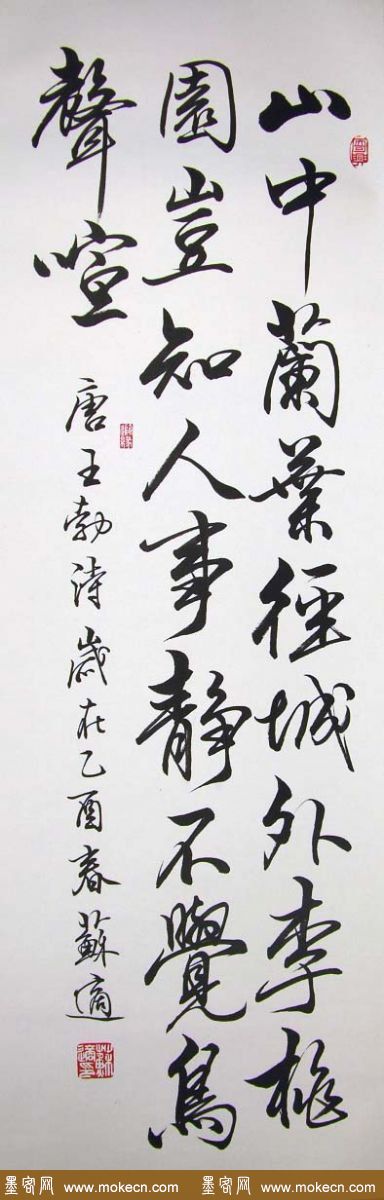 山中蘭葉徑城外李桃
園豈知人事靜不覺鳥
聲喧
唐王勃詩歲在乙酉春蘇適
墨客网 www.mokecn.com 墨客网 www.mokecn.com